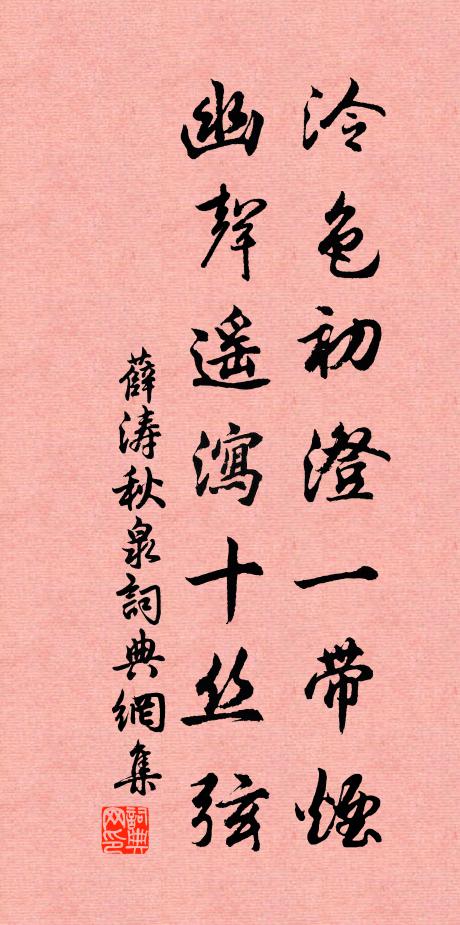 泠色初澄一带煙
幽聲遥瀉十丝弦
薛涛秋泉詞典網集
詞典
网印